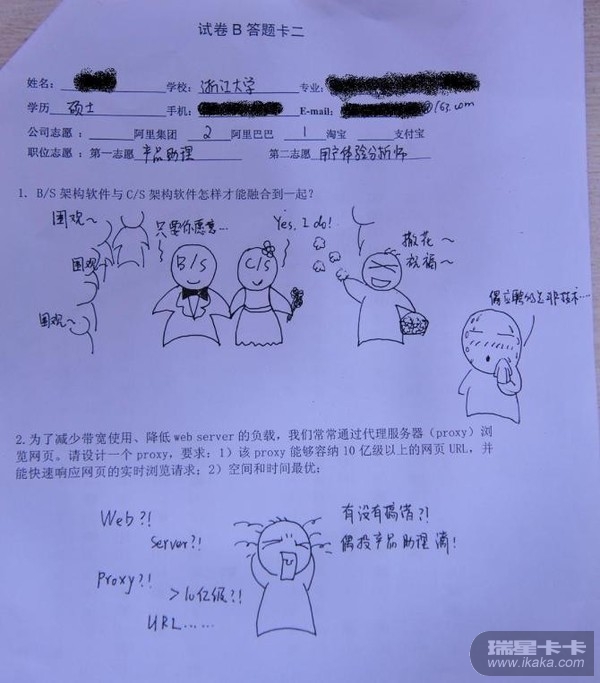 试卷 B 答题卡二
姓名： 学校： 浙江大学 专业：
学历 硕士 手机： E-mail: @163.com
公司志愿： 阿里集团 2 阿里巴巴 1 淘宝 支付宝
职位志愿：第一志愿 产品助理 第二志愿 用户体验分析师
1. B/S 架构软件与 C/S 架构软件怎样才能融合到一起？
围观～
围观～
围观～
只要你愿意…
B/S
C/S
Yes, I do!
撒花～
祝福～
偶应聘的是非技术…
2.为了减少带宽使用、降低 web server 的负载，我们常常通过代理服务器（proxy）浏
览网页。请设计一个 proxy，要求：1）该 proxy 能够容纳 10 亿级以上的网页 URL，并
能快速响应网页的实时浏览请求；2）空间和时间最优：
Web?!
Server?!
Proxy?!
>10亿级?!
URL......
有没有搞错?!
偶投产品助理滴!
瑞星卡卡
www.ikaka.com